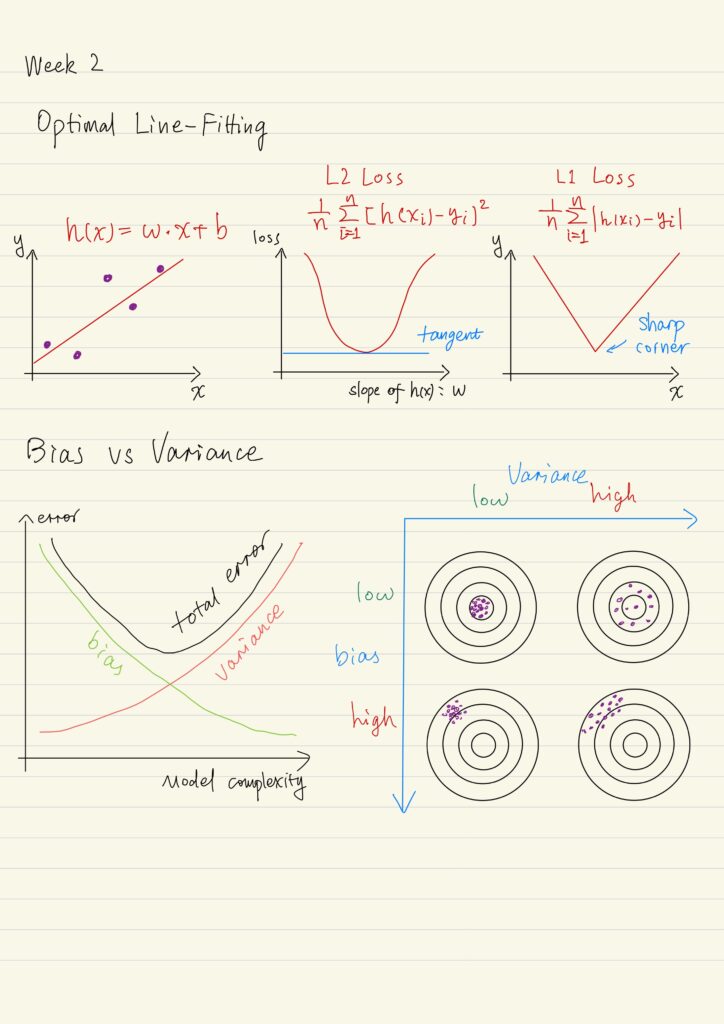 Week 2
Optimal Line-Fitting
h(x) = w·x+b
y
x
L2 Loss
1/n ∑_{i=1}^{n} [h(xi)-yi)²
loss
tangent
slope of h(x) : w
L1 Loss
1/n ∑_{i=1}^{n} |h(xi)-yi|
y
sharp
corner
x
Bias vs Variance
error
total error
bias
variance
Model complexity
Variance
low
high
low
bias
high